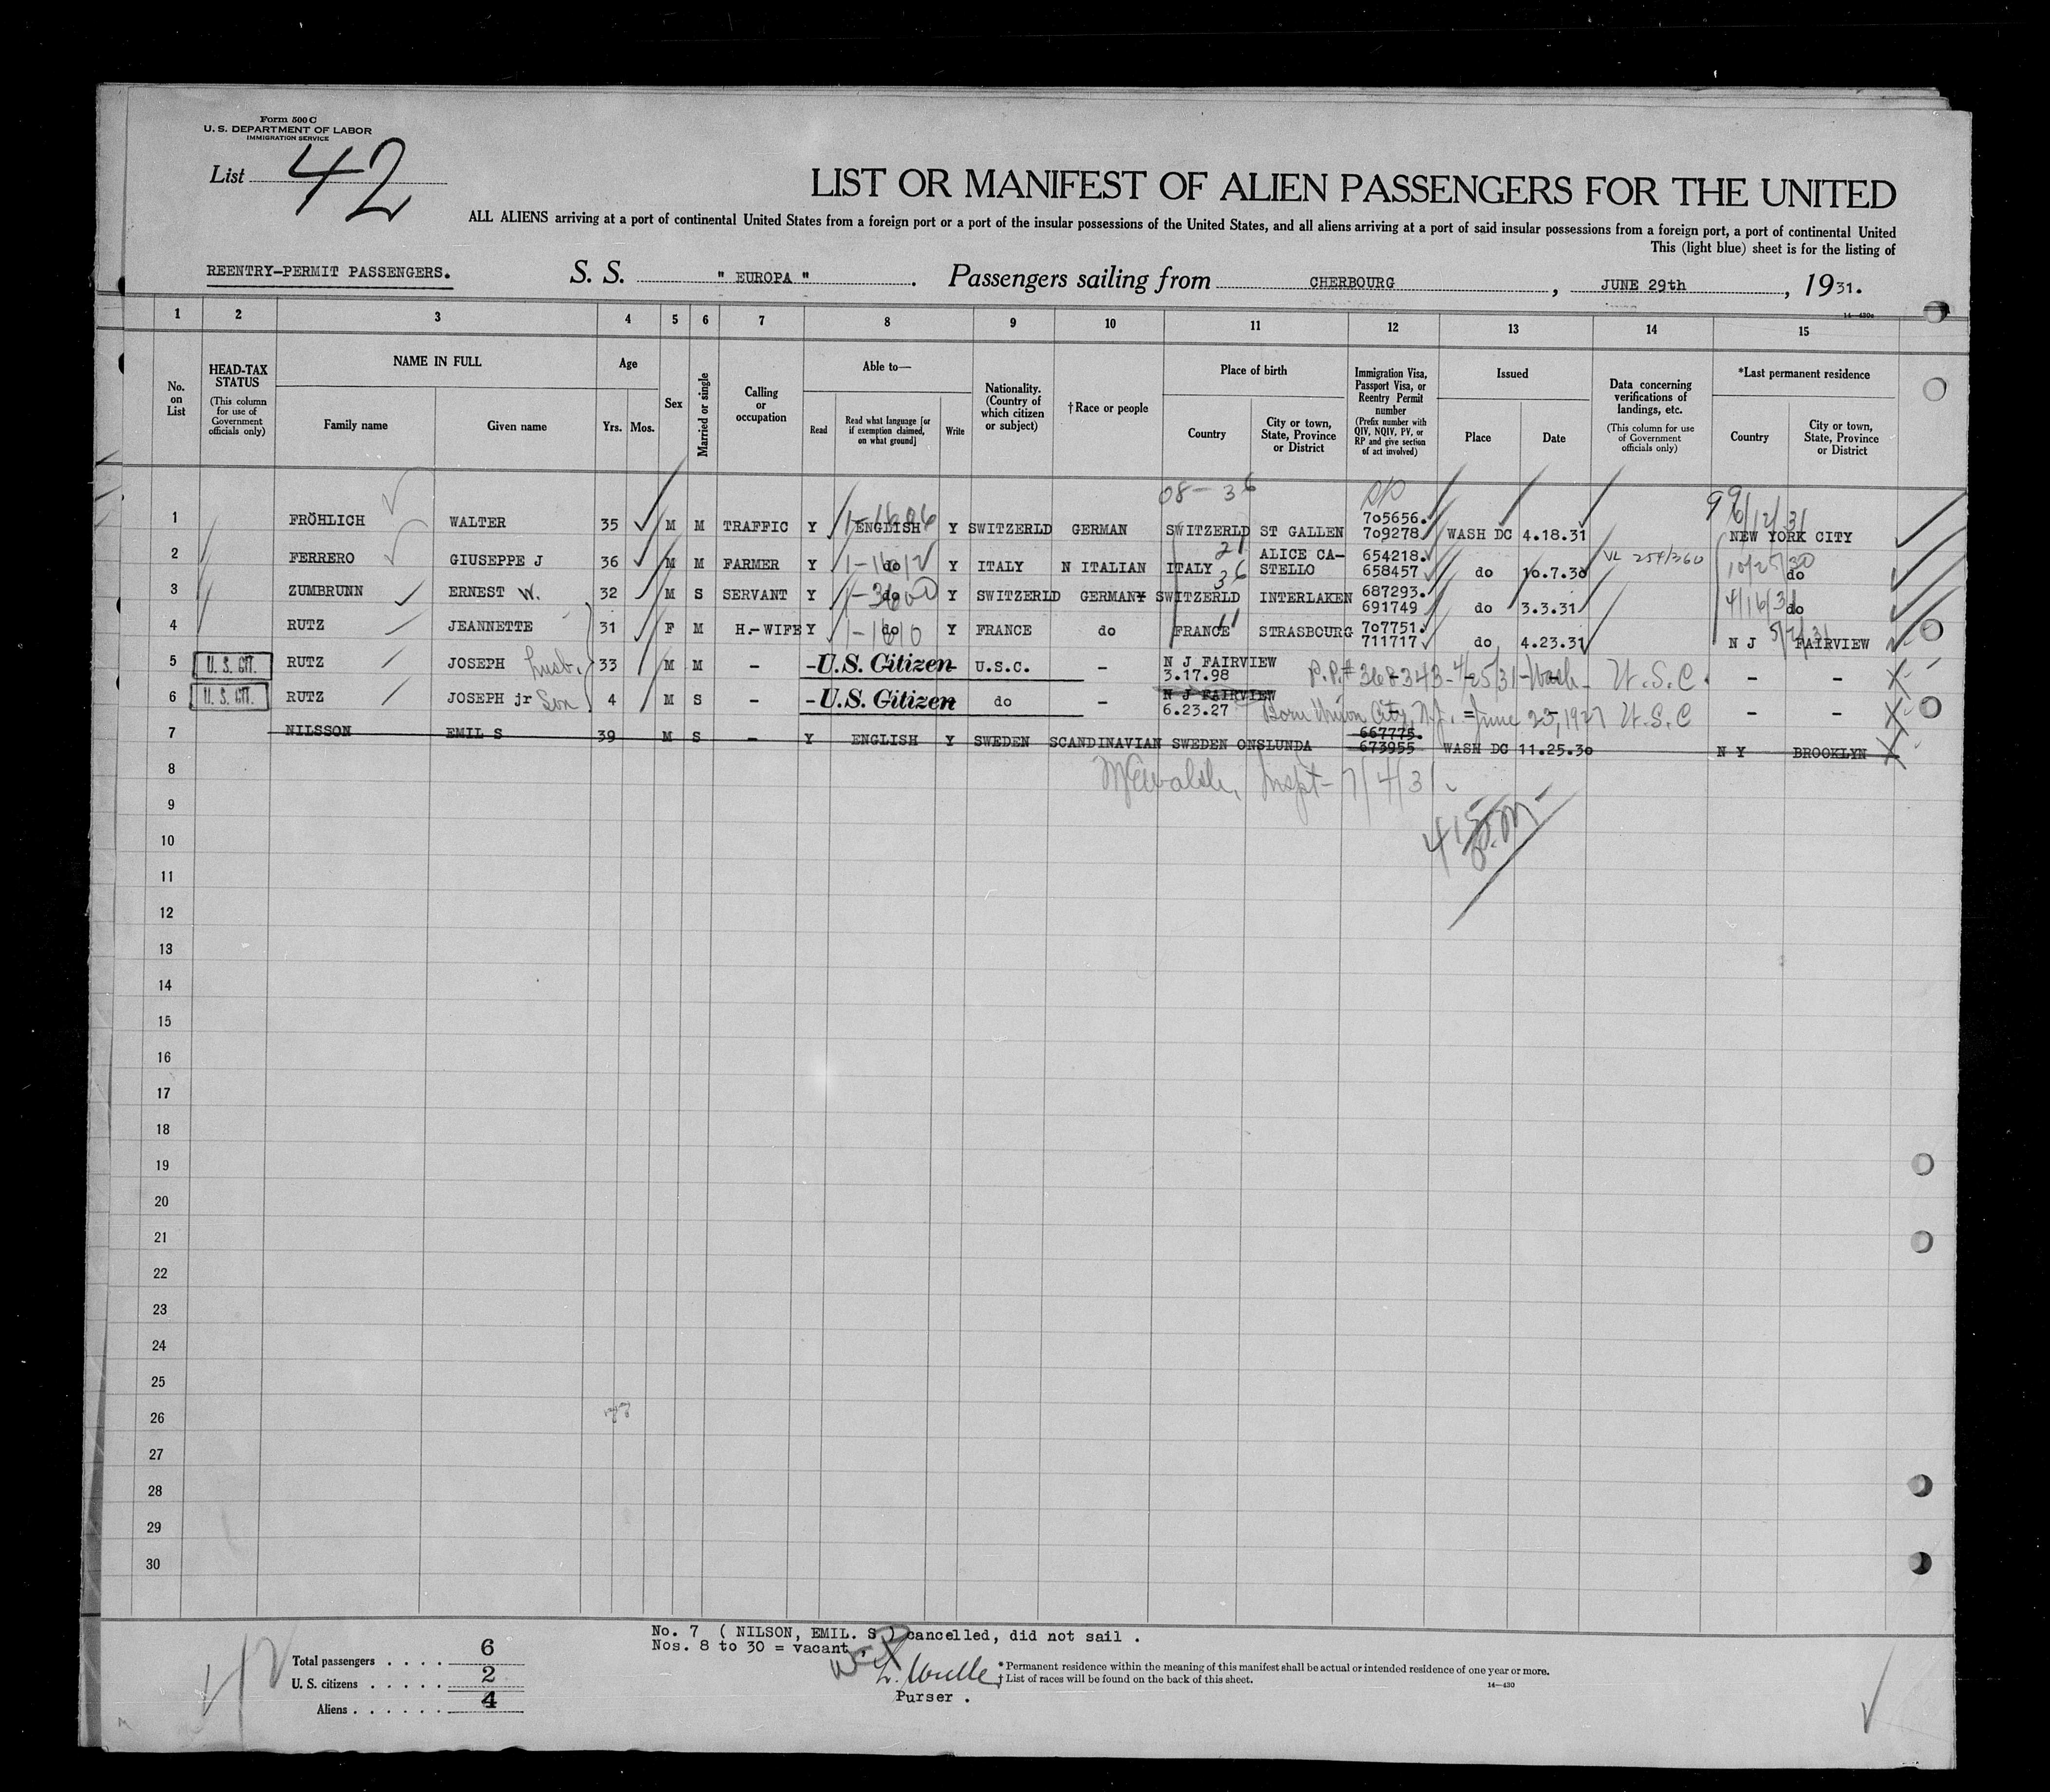 Form 500 C
U. S. DEPARTMENT OF LABOR
IMMIGRATION SERVICE
List 42
LIST OR MANIFEST OF ALIEN PASSENGERS FOR THE UNITED
ALL ALIENS arriving at a port of continental United States from a foreign port or a port of the insular possessions of the United States, and all aliens arriving at a port of said insular possessions from a foreign port, a port of continental United
This (light blue) sheet is for the listing of
REENTRY-PERMIT PASSENGERS. S. S. " EUROPA " . Passengers sailing from CHERBOURG , JUNE 29th , 1931.
14-430c
1 2 3 4 5 6 7 8 9 10 11 12 13 14 15
No. on List
HEAD-TAX STATUS (This column for use of Government officials only)
NAME IN FULL
Family name Given name
Age
Yrs. Mos.
Sex
Married or single
Calling or occupation
Able to—
Read
Read what language [or if exemption claimed, on what ground]
Write
Nationality. (Country of which citizen or subject)
†Race or people
Place of birth
Country
City or town, State, Province or District
Immigration Visa, Passport Visa, or Reentry Permit number (Prefix number with QIV, NQIV, PV, or RP and give section of act involved)
Issued
Place Date
Data concerning verifications of landings, etc. (This column for use of Government officials only)
*Last permanent residence
Country
City or town, State, Province or District
08-36 RP 99 6/12/31
1 FRÖHLICH WALTER 35 M M TRAFFIC Y ENGLISH Y SWITZERLD GERMAN SWITZERLD ST GALLEN 705656. 709278 WASH DC 4.18.31 NEW YORK CITY
2 FERRERO GIUSEPPE J 36 M M FARMER Y do 1-1612 Y ITALY N ITALIAN ITALY 21 ALICE CA-STELLO 654218. 658457 do 10.7.30 VL 254/360 10/25/30 do
3 ZUMBRUNN ERNEST W. 32 M S SERVANT Y do 1-3600 Y SWITZERLD GERMANY SWITZERLD 36 INTERLAKEN 687293. 691749 do 3.3.31 4/16/31 do
4 RUTZ JEANNETTE 31 F M H.-WIFE Y do 1-1610 Y FRANCE do FRANCE 11 STRASBOURG 707751. 711717 do 4.23.31 N J FAIRVIEW
5 U. S. CIT. RUTZ JOSEPH husb. 33 M M - -U.S. Citizen- U.S.C. - N J FAIRVIEW 3.17.98 P.P.# 368343-4/25/31-Wash- U.S.C. - -
6 U. S. CIT. RUTZ JOSEPH jr Son 4 M S - -U.S. Citizen do - N J FAIRVIEW 6.23.27 Born Union City, N.J. = June 23, 1927 U.S.C - -
7 NILSSON EMIL S 39 M S - Y ENGLISH Y SWEDEN SCANDINAVIAN SWEDEN ONSLUNDA 667775. 673955 WASH DC 11.25.30 N Y BROOKLYN
8 Inspt- 7/4/31.
9
10
11
12
13
14
15
16
17
18
19
20
21
22
23
24
25
26
27
28
29
30
No. 7 ( NILSON, EMIL. S ) cancelled, did not sail .
Nos. 8 to 30 = vacant .
Total passengers . . . . 6
U. S. citizens . . . . . 2
Aliens . . . . . . 4
Purser .
*Permanent residence within the meaning of this manifest shall be actual or intended residence of one year or more.
†List of races will be found on the back of this sheet.
14-430